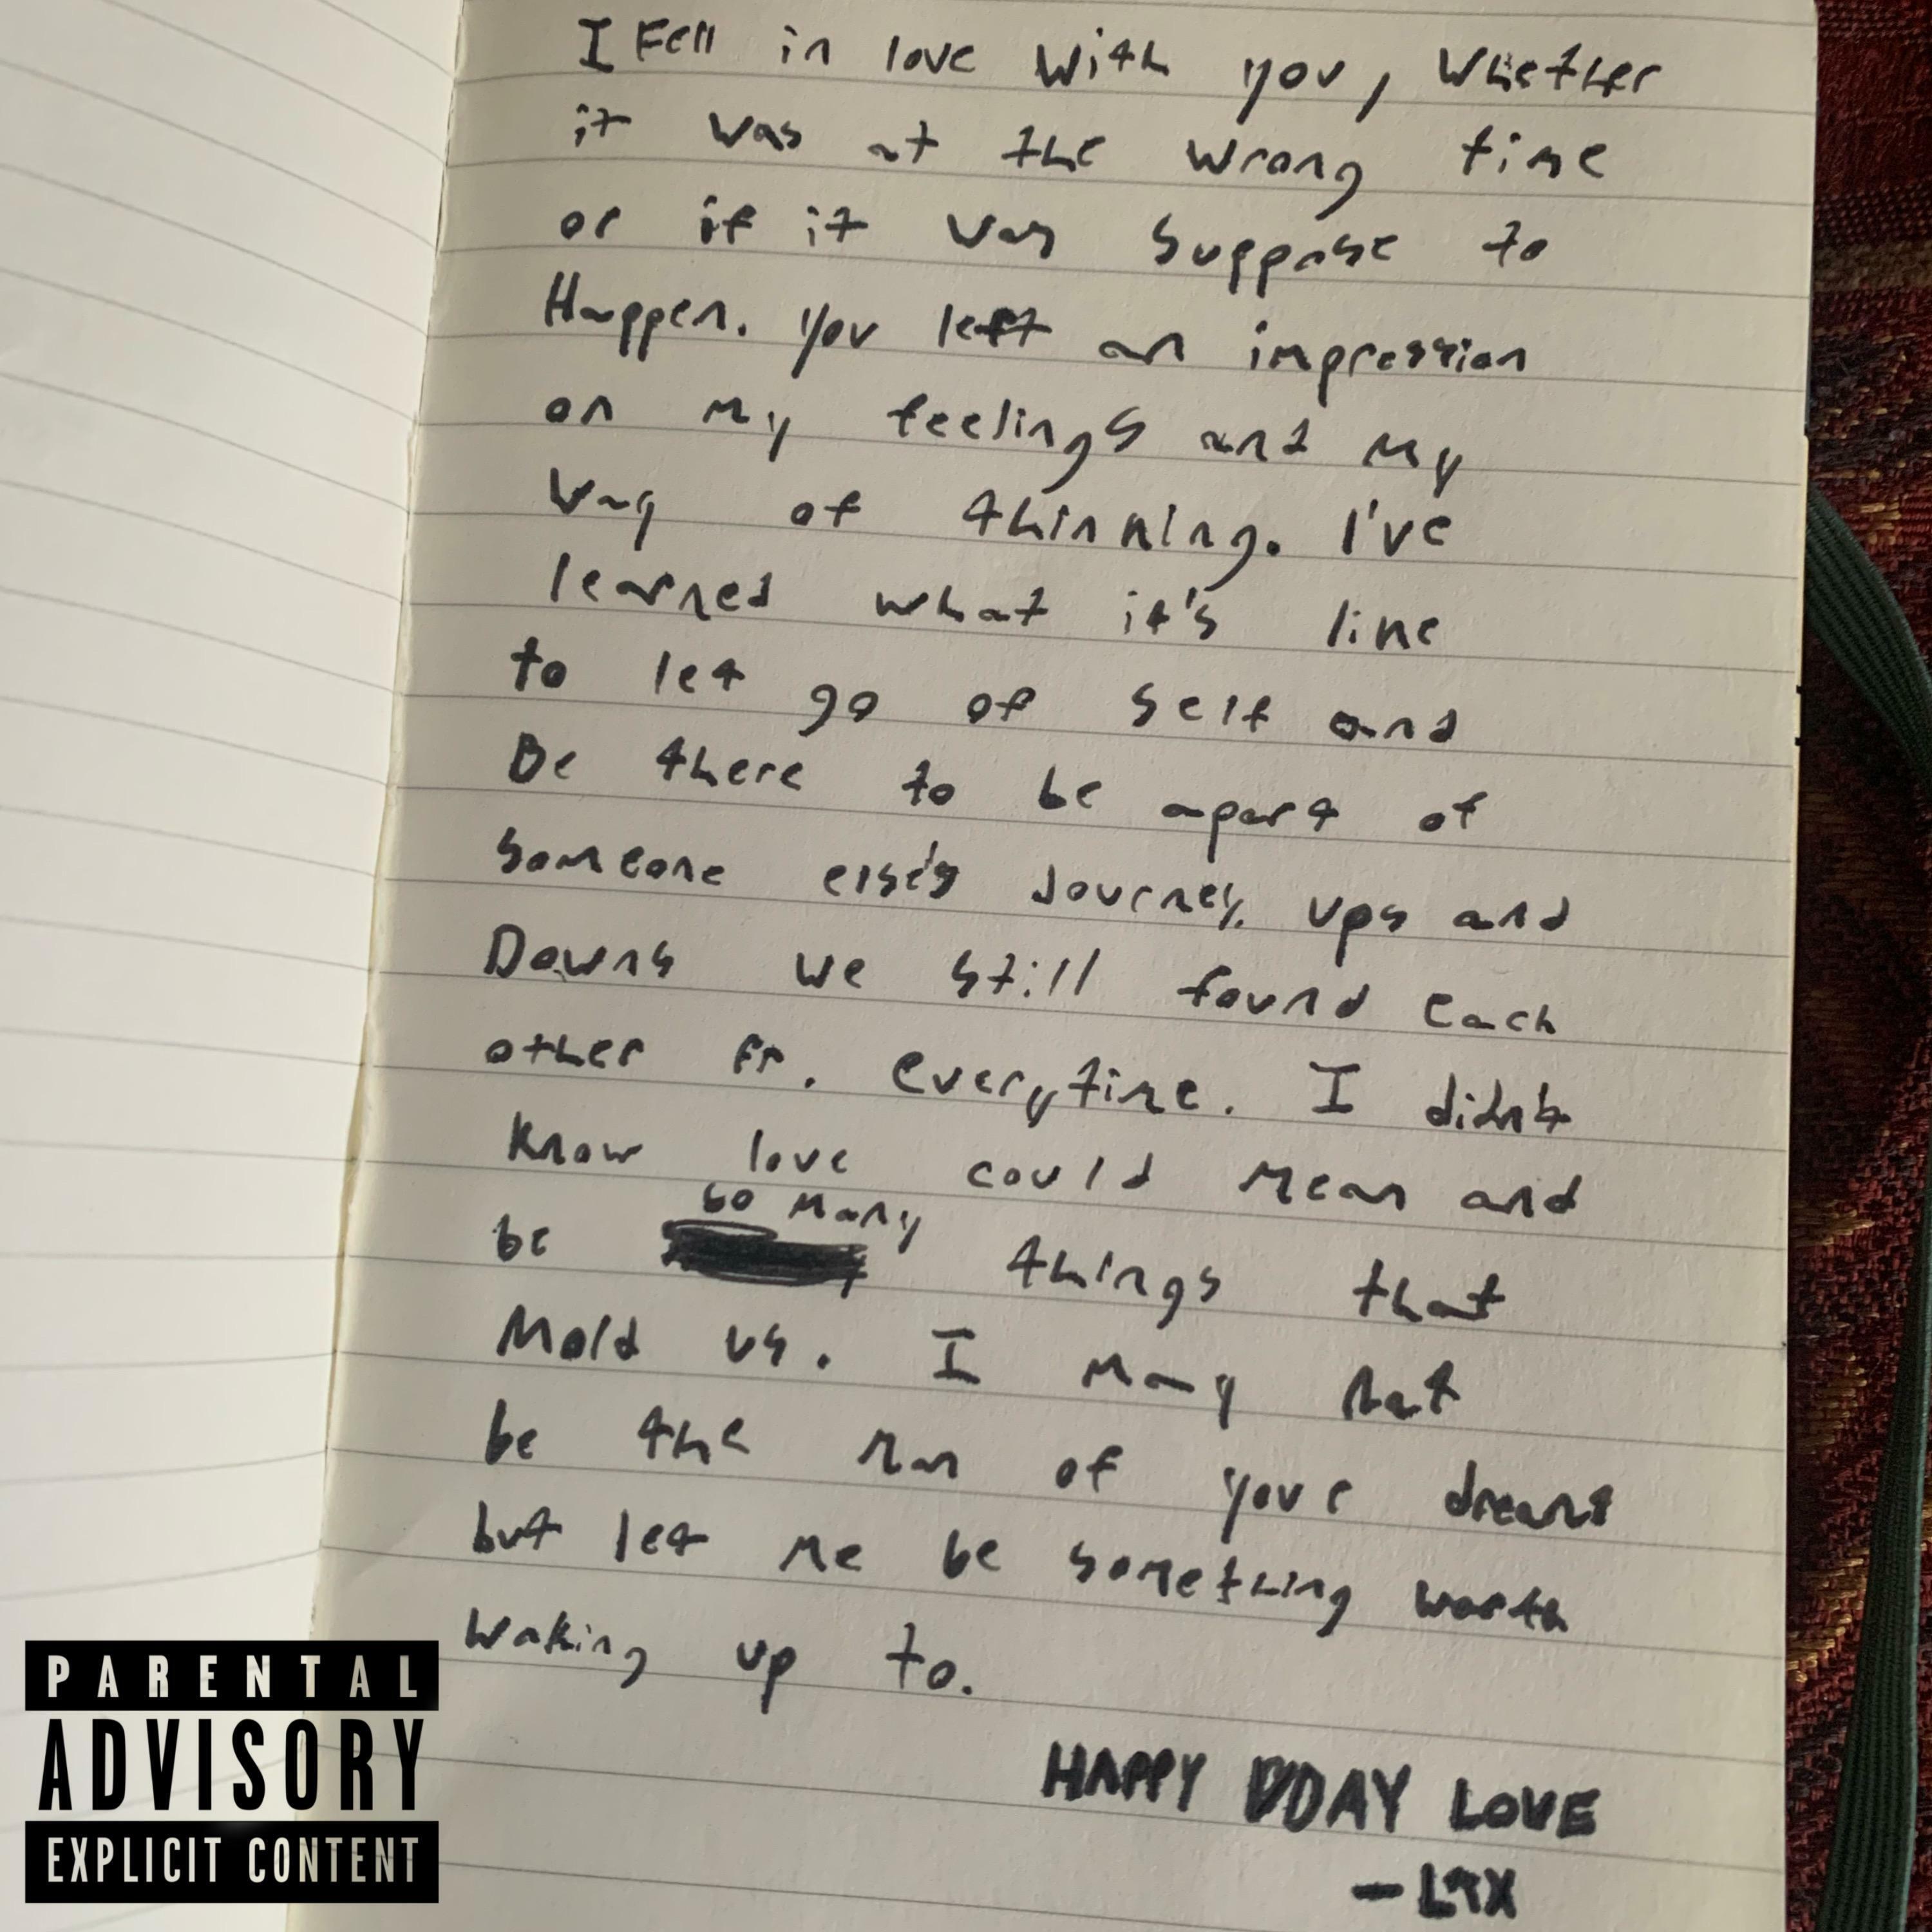 I Fell in love With you, Whether
it was at the wrong time
or if it was suppose to
Happen. you left an impression
on my feelings and my
way of thinking. I've
learned what it's like
to let go of self and
Be there to be apart of
someone else's Journey. ups and
Downs we still found each
other fr. everytime. I didn't
know love could mean and
so many
be things that
Mold us. I may not
be the man of your dreams
but let me be something worth
waking up to.
HAPPY BDAY LOVE
PARENTAL
ADVISORY
EXPLICIT CONTENT